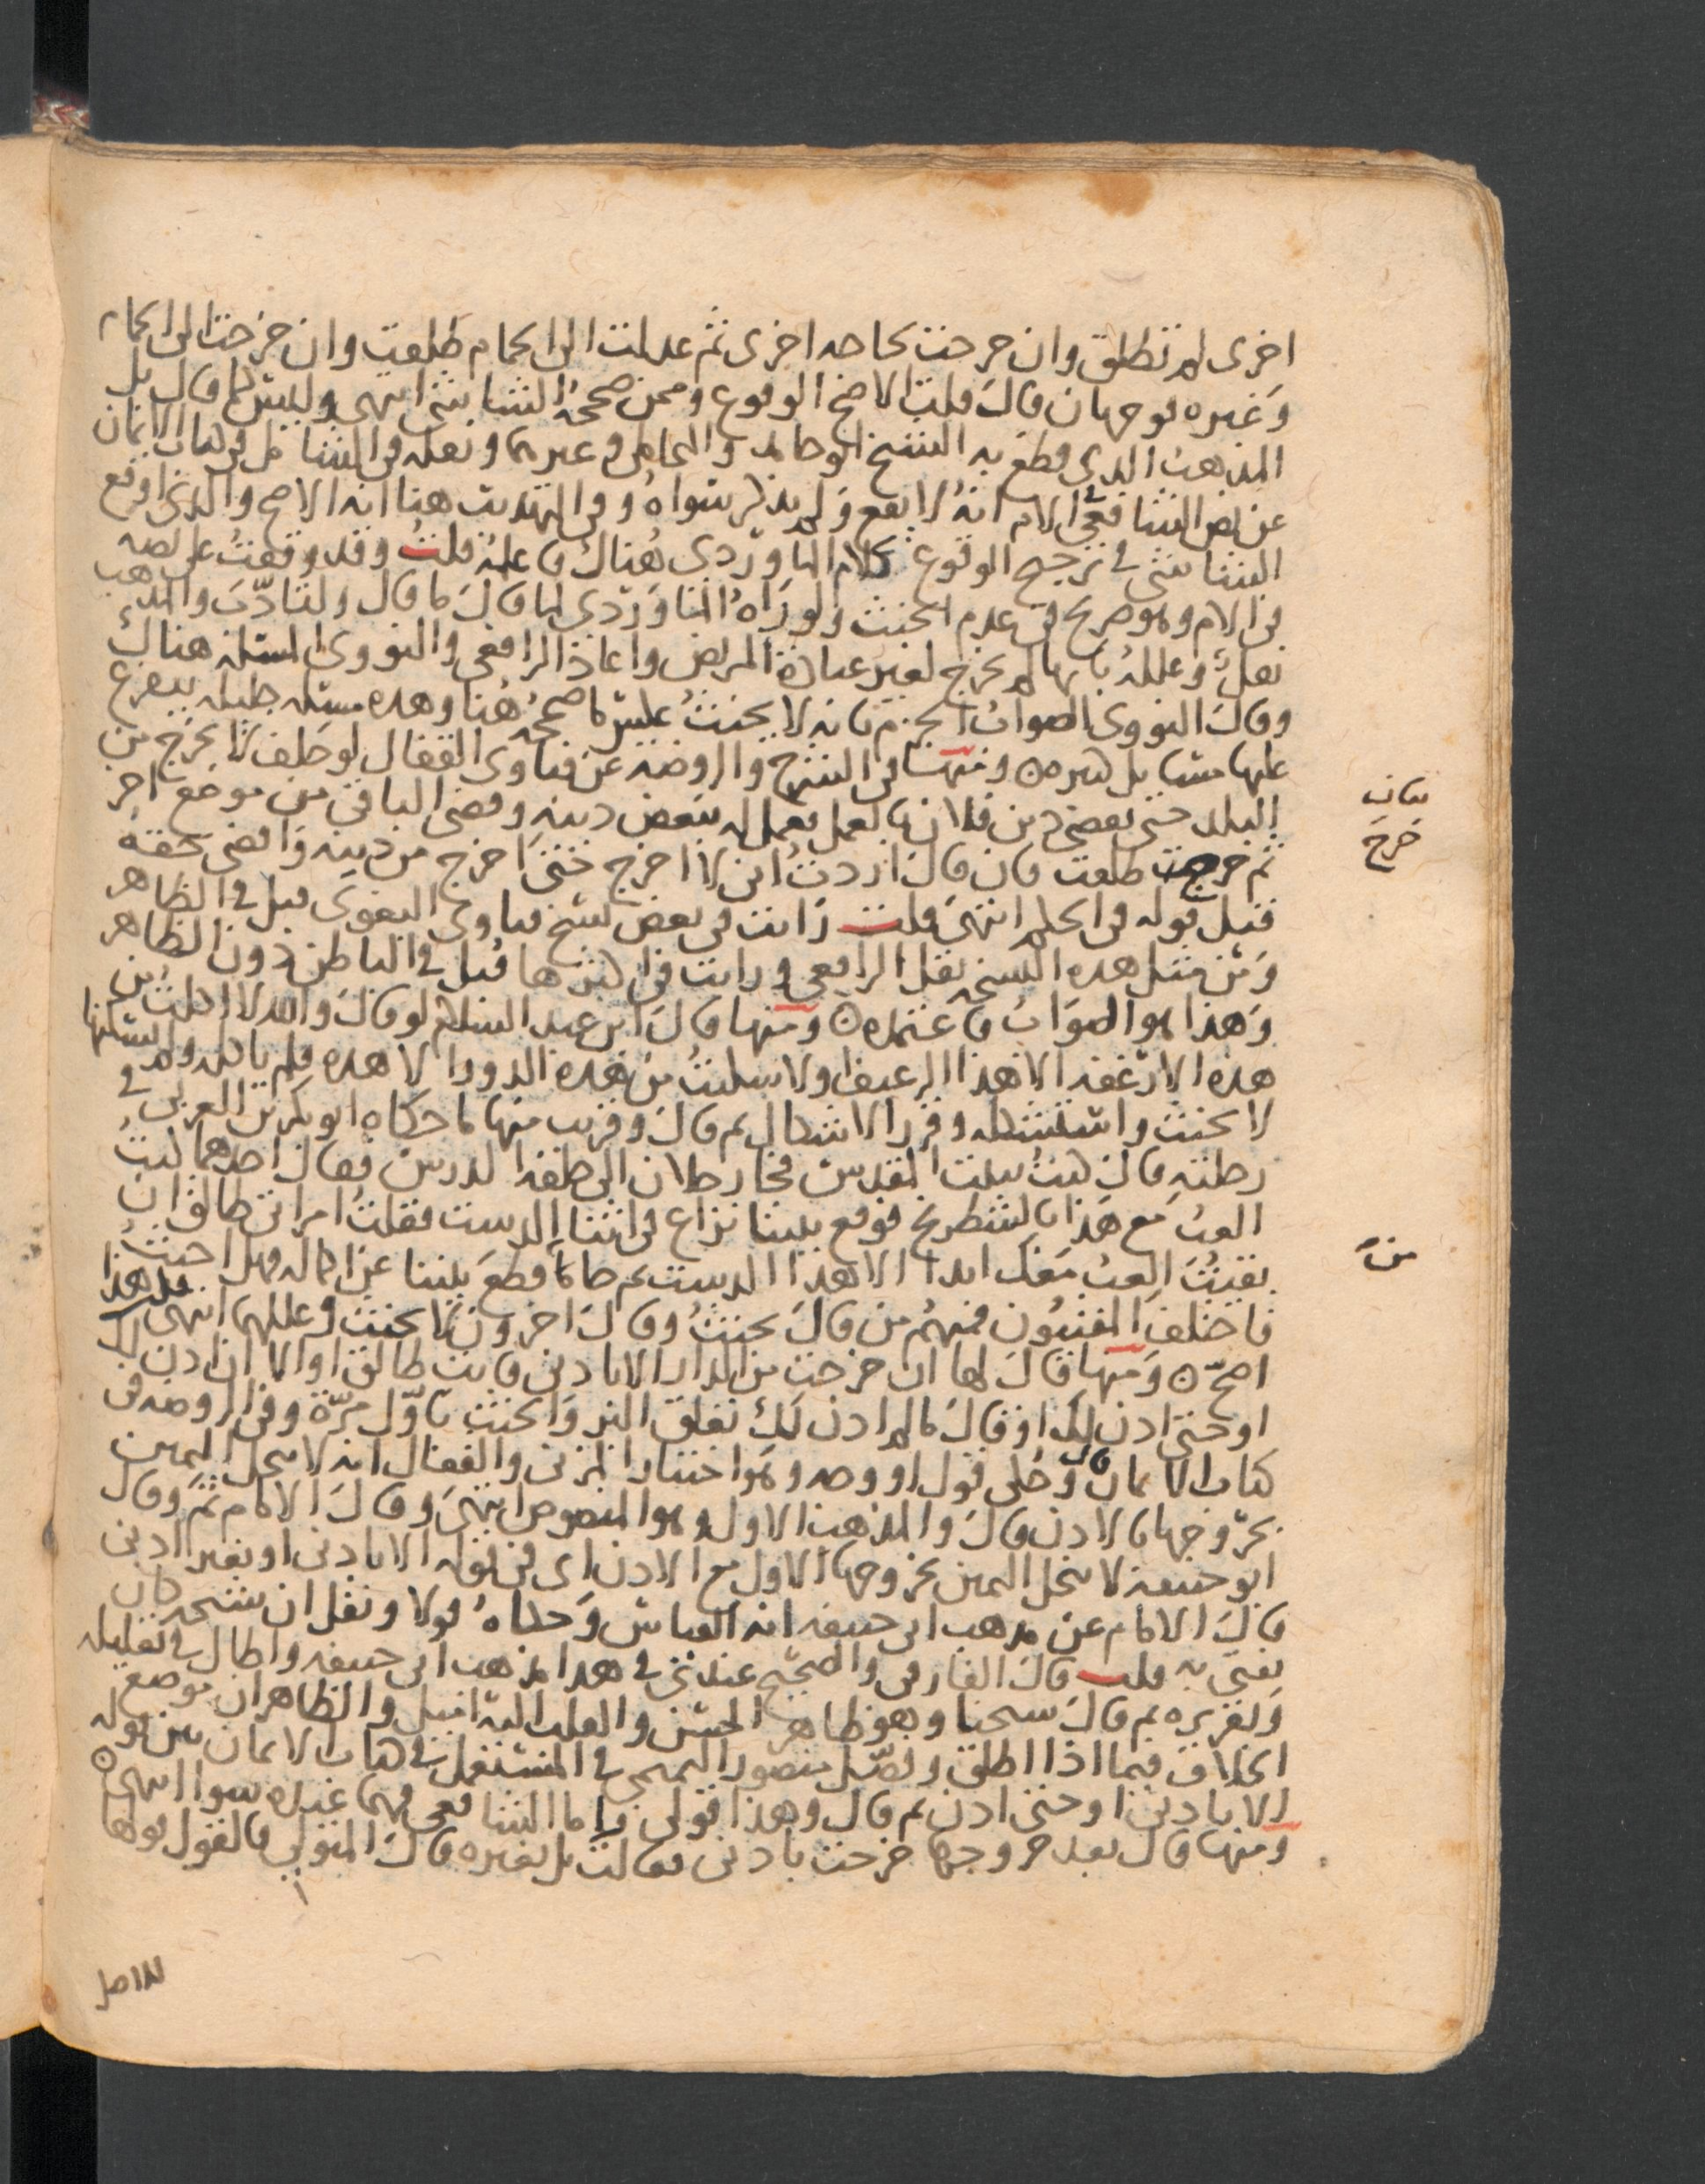 اخرى لم تطلق وان خرجت لحاجه اخرى ثم عدلت الى الحمام طلقت وان خرجت الى الحمام
وغيره فوجهان قال قلت الاصح الوقوع وممن صححه الشاشي انتهى وليس كما قال بل
المذهب الذي قطع به الشيخ ابو حامد والمحاملي وغيرهما ونقله في الشامل في كتاب الايمان
عن نص الشافعي في الام انه لا يقع ولم يذكر سواه وفي التهذيب هنا انه الاصح والذي اوقع
الشاشي في ترجيح الوقوع كلام الماوردي هناك فاعلمه قلت وقد وقفت على نصه
في الام وهو صريح في عدم الحنث ولو راه الماوردي لما قال ما قال ولتادب والمذهب
نقله وعلله بانها لم تخرج لغير عيادة المريض واعاد الرافعي والنووي المسئلة هناك
وقال النووي الصواب الجزم بانه لا يحنث عكس ما صححه هنا وهذه مسئله جليله يتفرع
عليها مسايل كثيره ه ومنها في الشرح والروضه عن فتاوى القفال لو حلف لا يخرج من
البلد حتى يقضي دين فلان بالعمل فعمل له ببعض دينه وقضى الباقي من موضع اخر
ثم خرج طلقت فان قال اردت اني لا اخرج حتى اخرج من دينه واقضي حقه
قبل قوله في الحكم انتهى قلت رايت في بعض نسخ فتاوى البغوي قبل في الظاهر
ومن مثل هذه النسخه نقل الرافعي ورايت في اكثرها قبل في الباطن دون الظاهر
وهذا هو الصواب فاعتمده ه ومنها قال ابن عبد السلام لو قال والله لا اكلت من
هذه الارغفه الا هذا الرغيف ولا سكنت من هذه الدور الا هذه فلم ياكله ولم يسكنها
لا يحنث واستشكله وقرر الاشكال ثم قال وقريب منها ما حكاه ابو بكر بن العربي في
رحلته قال كنت ببيت المقدس فجا رجلان الى حلقه الدرس فقال احدهما كنت
العب مع هذا بالشطرنج فوقع بيننا نزاع في اثنا الدست فقلت امراتي طالق ان
بقيت العب معك ابدا الا هذا الدست ثم جا ما قطع بيننا عن اكماله فهل احنث
فاختلف المفتيون فمنهم من قال يحنث وقال اخرون لا يحنث وعللهما انتهى قلت هذا
اصح ه ومنها قال لها ان خرجت من الدار الا باذني فانت طالق او الا ان اذن لك
او حتى اذن لك او قال ما لم اذن لك تعلق البر والحنث باول مرة وفي الروضه في
كتاب الايمان قال وحكي قول او وجه وهو اختيار المزني والقفال انه لا تنحل اليمين
بخروجها بالاذن قال والمذهب الاول وهو المنصوص انتهى وقال الامام ثم وقال
ابو حنيفه لا تنحل اليمين بخروجها الاول مع الاذن اي في قوله الا باذني او بغير اذني
قال الامام عن مذهب ابي حنيفه انه القياس وحكاه قولا ونقل ان شيخه كان
يفتي به قلت قال الفارقي والصحيح عندي في هذا مذهب ابي حنيفه واطال في تعليله
وتقريره ثم قال شيخنا وهو ظاهر الحسن والقلب اليه اميل والظاهر ان موضع
الخلاف فيما اذا اطلق وفصل منصور التميمي في المستعمل في كتاب الايمان بين قوله
الا باذني او حتى اذن ثم قال وهذا قولي واما الشافعي فهما عنده سوا انتهى ه
ومنها قال بعد خروجها خرجت باذني فقالت بل بغيره قال المتولي فالقول قولها
فقال
خرج
من
للاصل